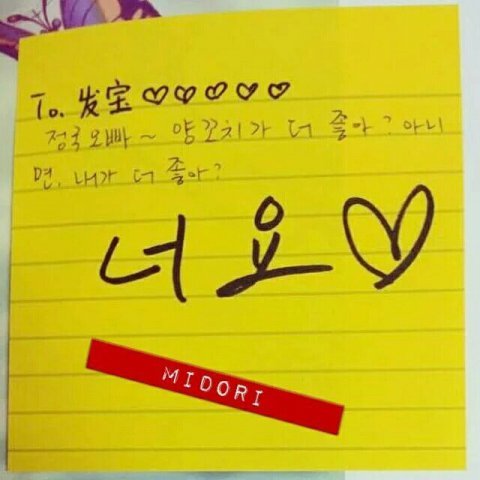 To. 发宝♡♡♡♡♡
정국오빠~ 양꼬치가 더 좋아? 아니
면, 내가 더 좋아?
너요♡
MIDORI